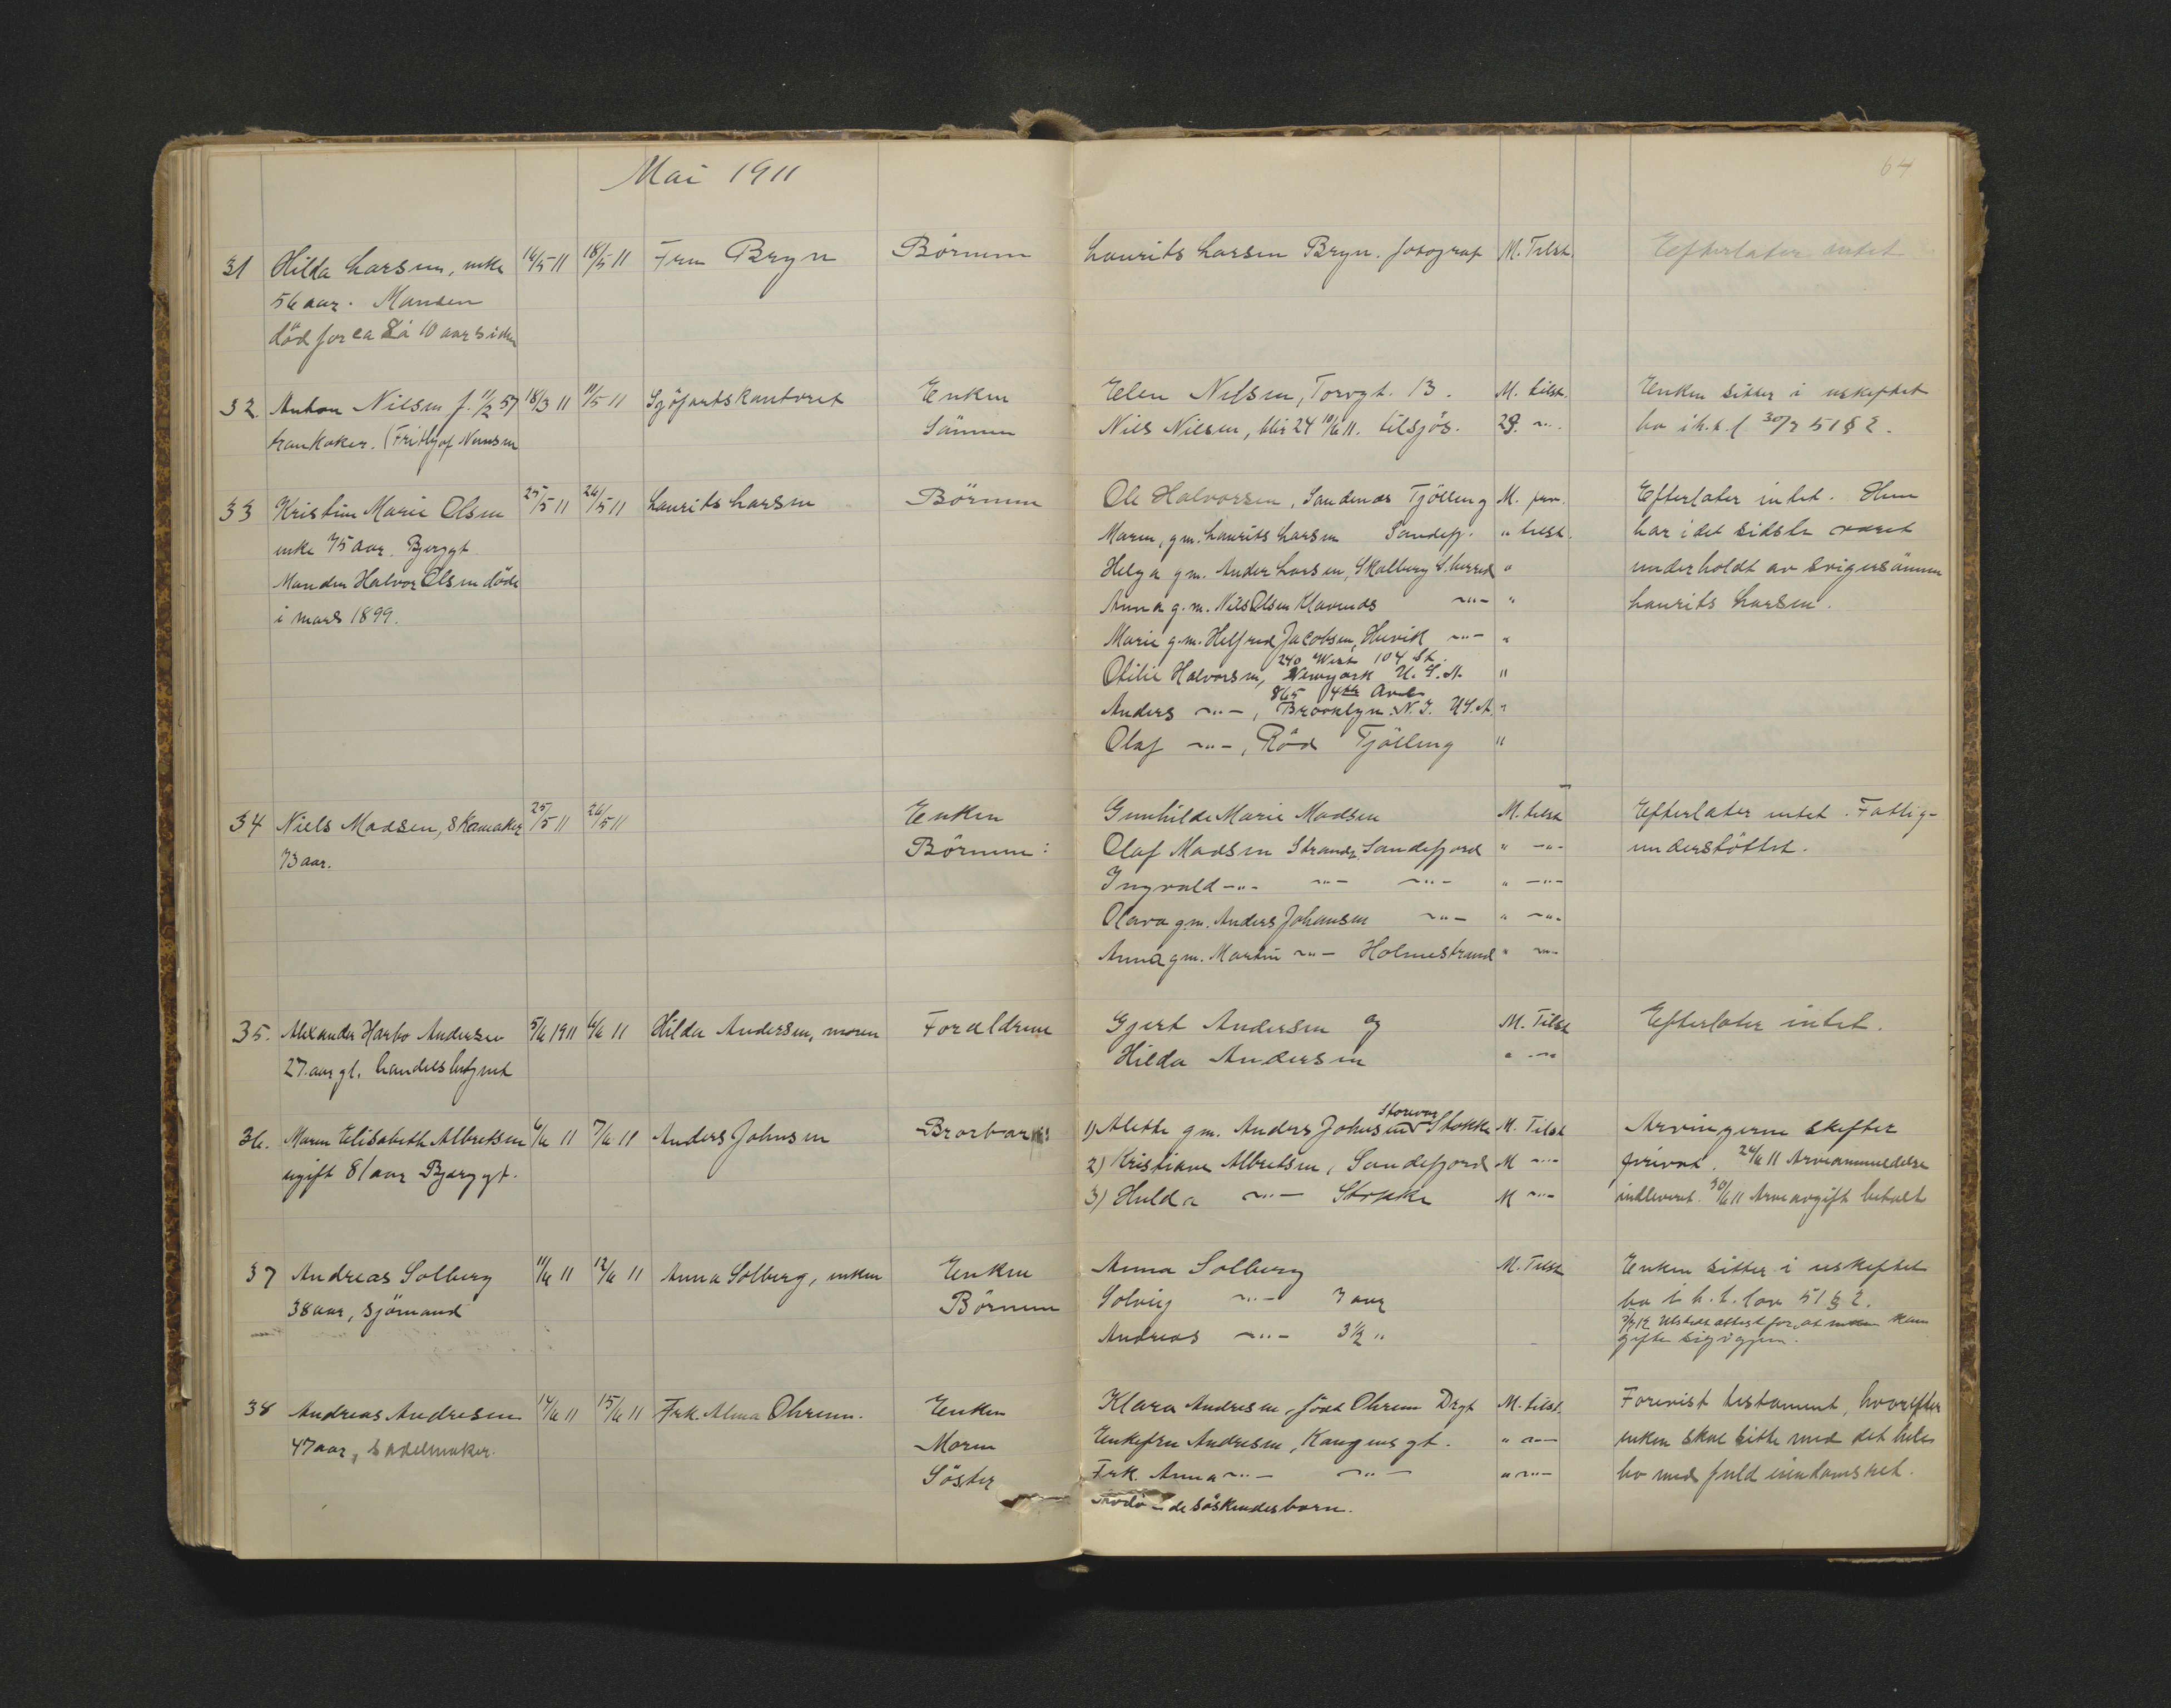 Mai 1911
64
31 Hilda Larsen, enke 16/5 11 18/5 11 Fru Bryn Börnene Laurits Larsen Bryn. fotograf M. Tilst. Efterlater intet
56 aar. Manden
död for ca 8 à 10 aar siden
32. Anton Nilsen f. 11/2 57 18/3 11 11/5 11 Sjöfartskontoret Enken Elen Nilsen, Torvgt. 13. M. tilst. Enken sitter i uskiftet
trankoker. (Frithjof Nansen Sönnen Niels Nilsen, blir 24 10/6 11. tilsjös. 23. -"- bo i h.t. l 30/7 51 § 2.
33 Kristine Marie Olsen 25/5 11 26/5 11 Laurits Larsen Börnene Ole Halvorsen, Sandenæs Tjölling M. frav. Efterlater intet. Hun
enke 75 aar. Bjergt Maren, g.m. Laurits Larsen Sandefj. " tilst. har i det sidste været
Manden Halvor Olsen döde Helga gm. Anders Larsen, Skalberg S.herred " underholdt av svigersönnen
i mars 1899. Anna g.m. Nils Olsen Klavenæs -"- " Laurits Larsen.
Marie g.m. Helfred Jacobsen, Huvik -"- "
240 West 104 St.
Otilie Halvorsen, Newyork U.S.A. "
865 4the Ave
Anders -"-, Brooklyn. N.J. U.S.A. "
Olaf -"-, Röd Tjölling "
34 Niels Madsen, skomaker 25/5 11 26/5 11 Enken Gunhilde Marie Madsen M. tilst Efterlater intet. Fattig-
73 aar. Börnene: Olaf Madsen Strandg. Sandefjord " -"- understöttet.
Ingvald -"- -"- -"- " -"-
Olava gm. Anders Johansen -"- " -"-
Anna gm. Martin -"- Holmestrand " -"-
35. Alexander Harbo Andersen 5/6 1911 6/6 11 Hilda Andersen, moren Forældrene Gjert Andersen og M. Tilst Efterlater intet.
27 aar gl. handelsbetjent Hilda Andersen " -"-
Storevar
36. Maren Elisabeth Albretsen 6/6 11 7/6 11 Anders Johnsen Brorbarn: 1) Alette gm. Anders Johnsen Stokke M. Tilst Arvingerne skifter
ugift 81 aar Bjerggt. 2) Kristiane Albretsen, Sandefjord M -"- privat. 24/6 11 Arveanmeldelse
3) Hulda -"- Stokke M -"- indleveret. 30/6 11 Arveavgift betalt
37 Andreas Solberg 11/6 11 12/6 11 Anna Solberg, enken Enken Anna Solberg M. Tilst Enken sitter i uskiftet
38 aar, sjömand Börnene Solveig -"- 7 aar bo i h.t. lov 51 § 2.
Andreas -"- 3 1/2 " Utstedt attest for, at enken kan
gifte sig igjen.
38 Andreas Andresen 14/6 11 15/6 11 Frk. Alma Ohrem. Enken Klara Andresen, född Ohrem Drgt M. tilst. Forevist testament, hvorefter
47 aar, sadelmaker. Moren Enkefru Andresen, Kongens gt. " -"- enken skal sitte med det hele
Söster Frk. Anna -"- -"- " -"- bo med fuld eiendomsret.
de söskendesbarn.